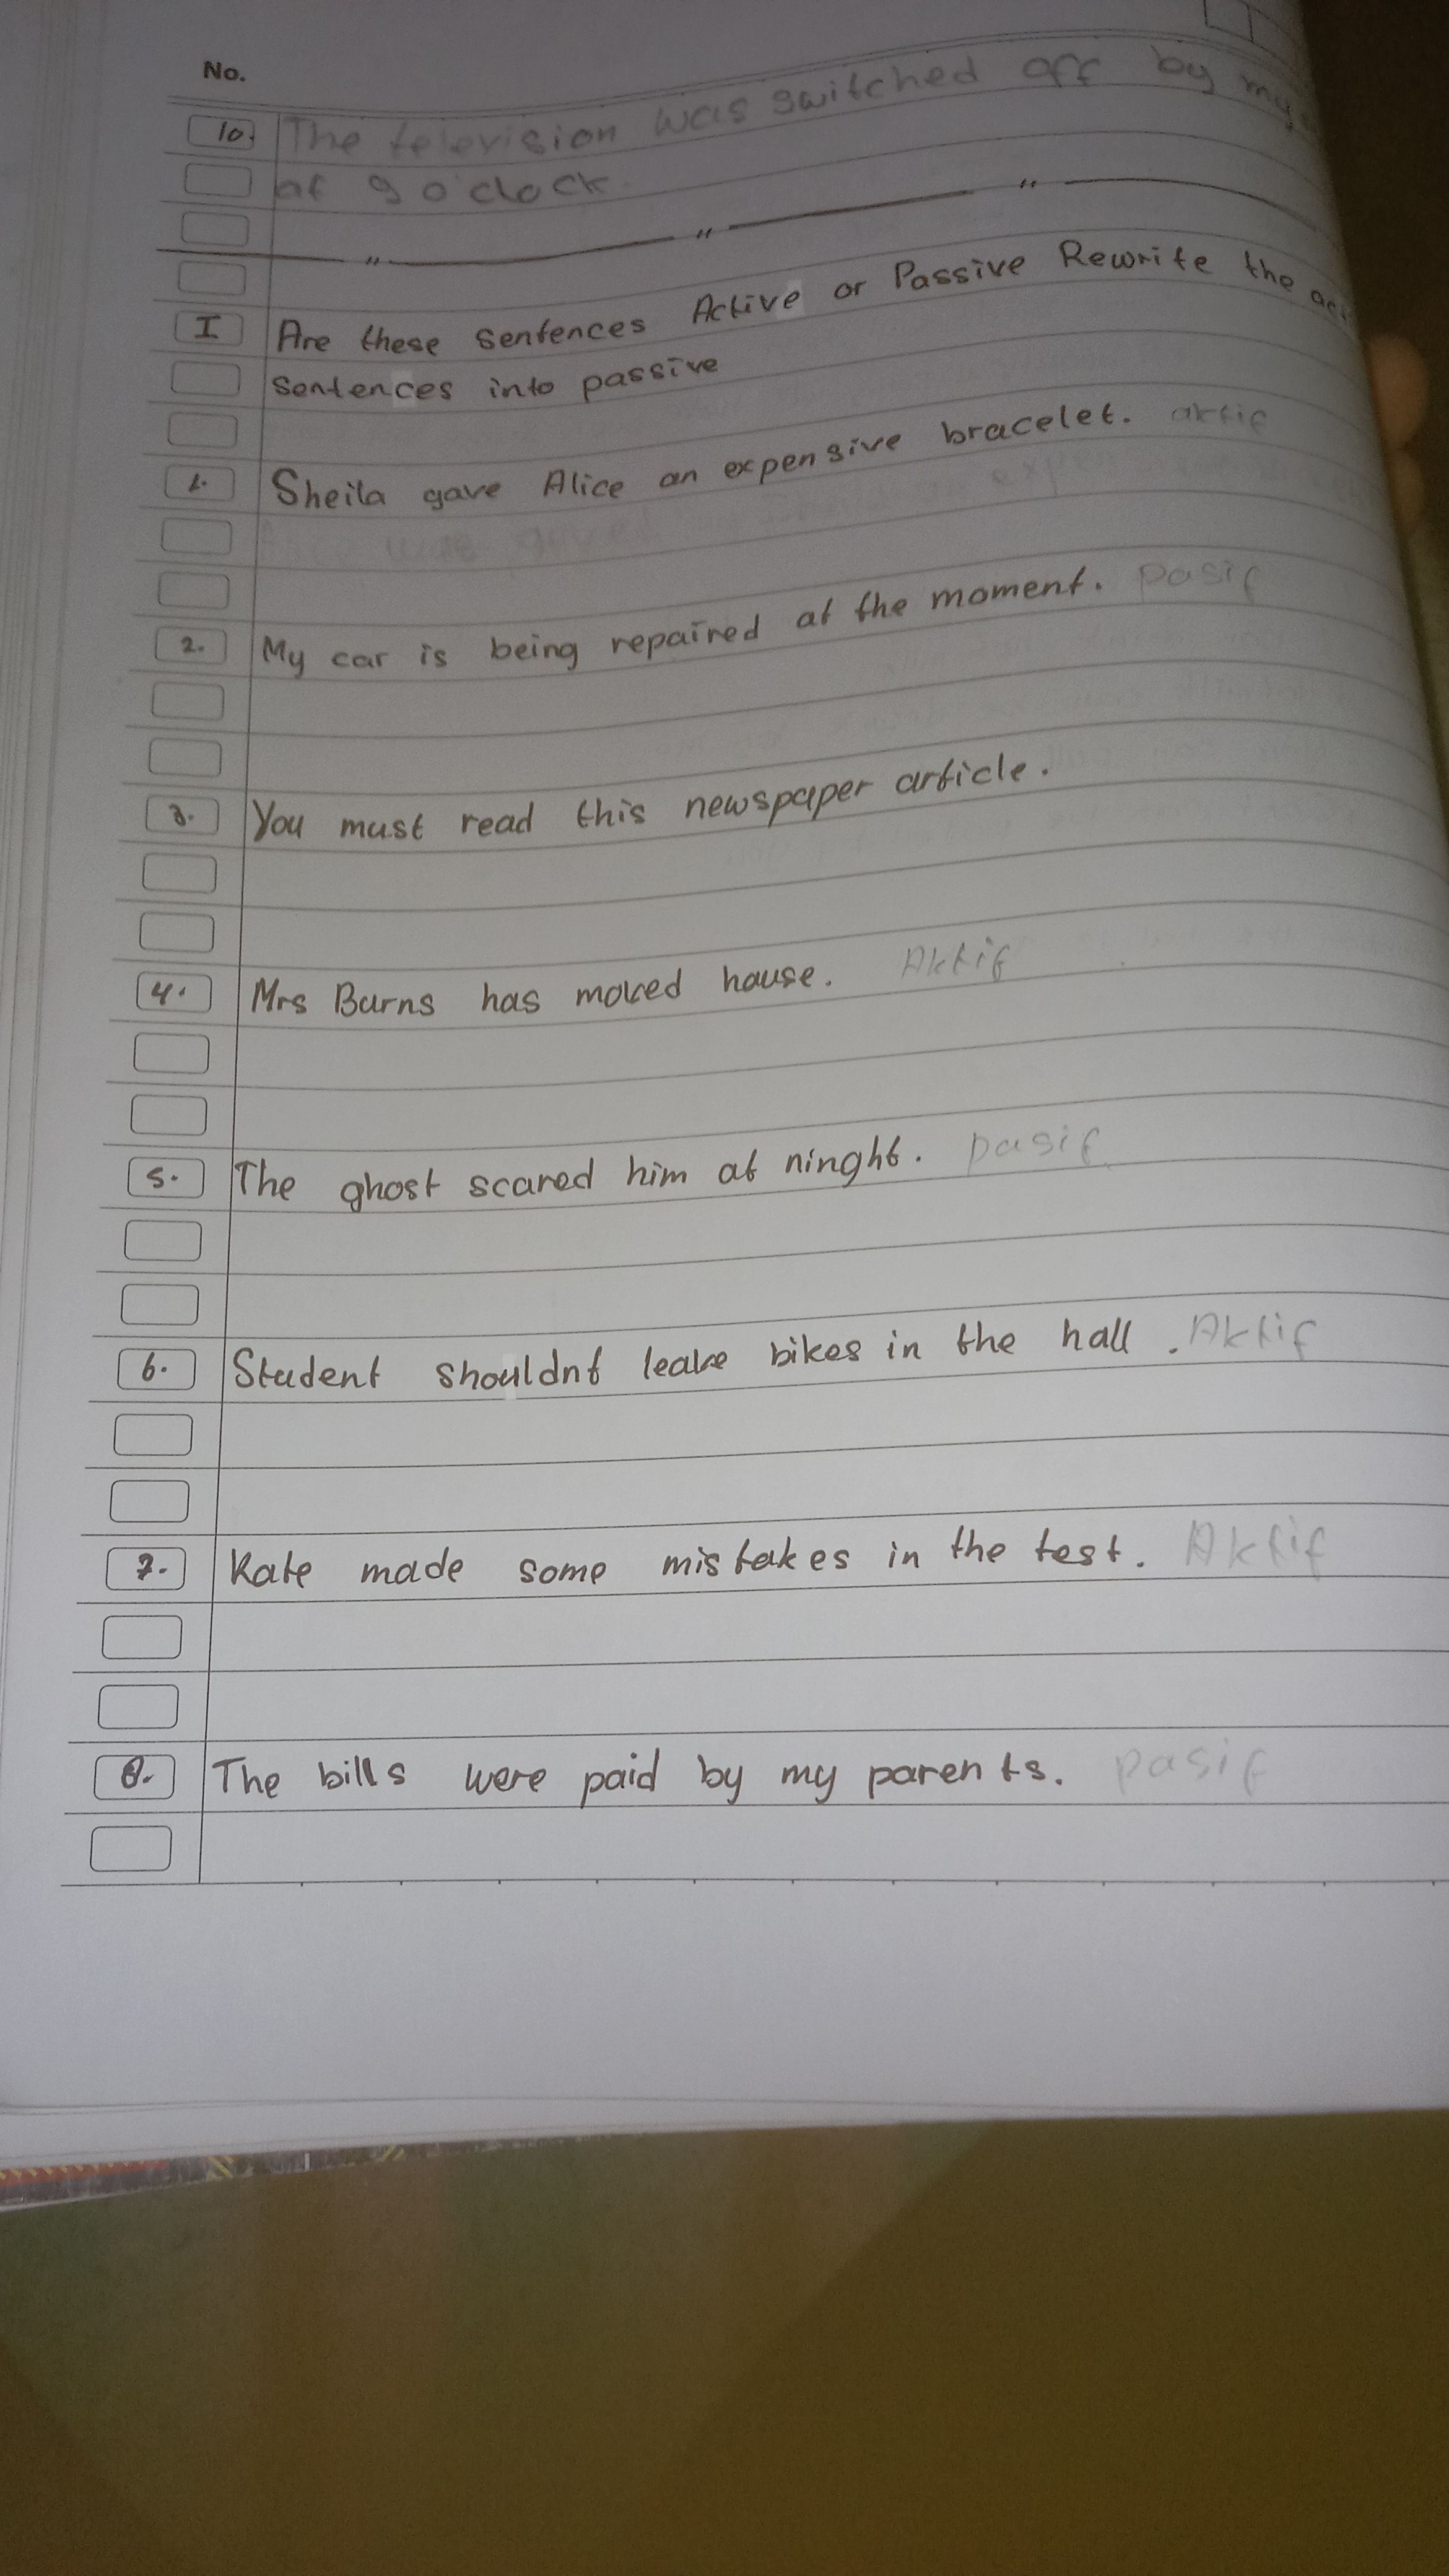 No.
10. The television was switched off by my
at 9 o'clock.
I Are these sentences Active or Passive Rewrite the
sentences into passive
1. Sheila gave Alice an expensive bracelet. aktif
Alice was gaved
2. My car is being repaired at the moment. pasif
3. You must read this newspaper article.
4. Mrs Burns has moved house. Aktif
5. The ghost scared him at ninght. pasif
6. Student shouldnt leave bikes in the hall. Aktif
7. Kate made some mistakes in the test. Aktif
8. The bills were paid by my parents. pasif